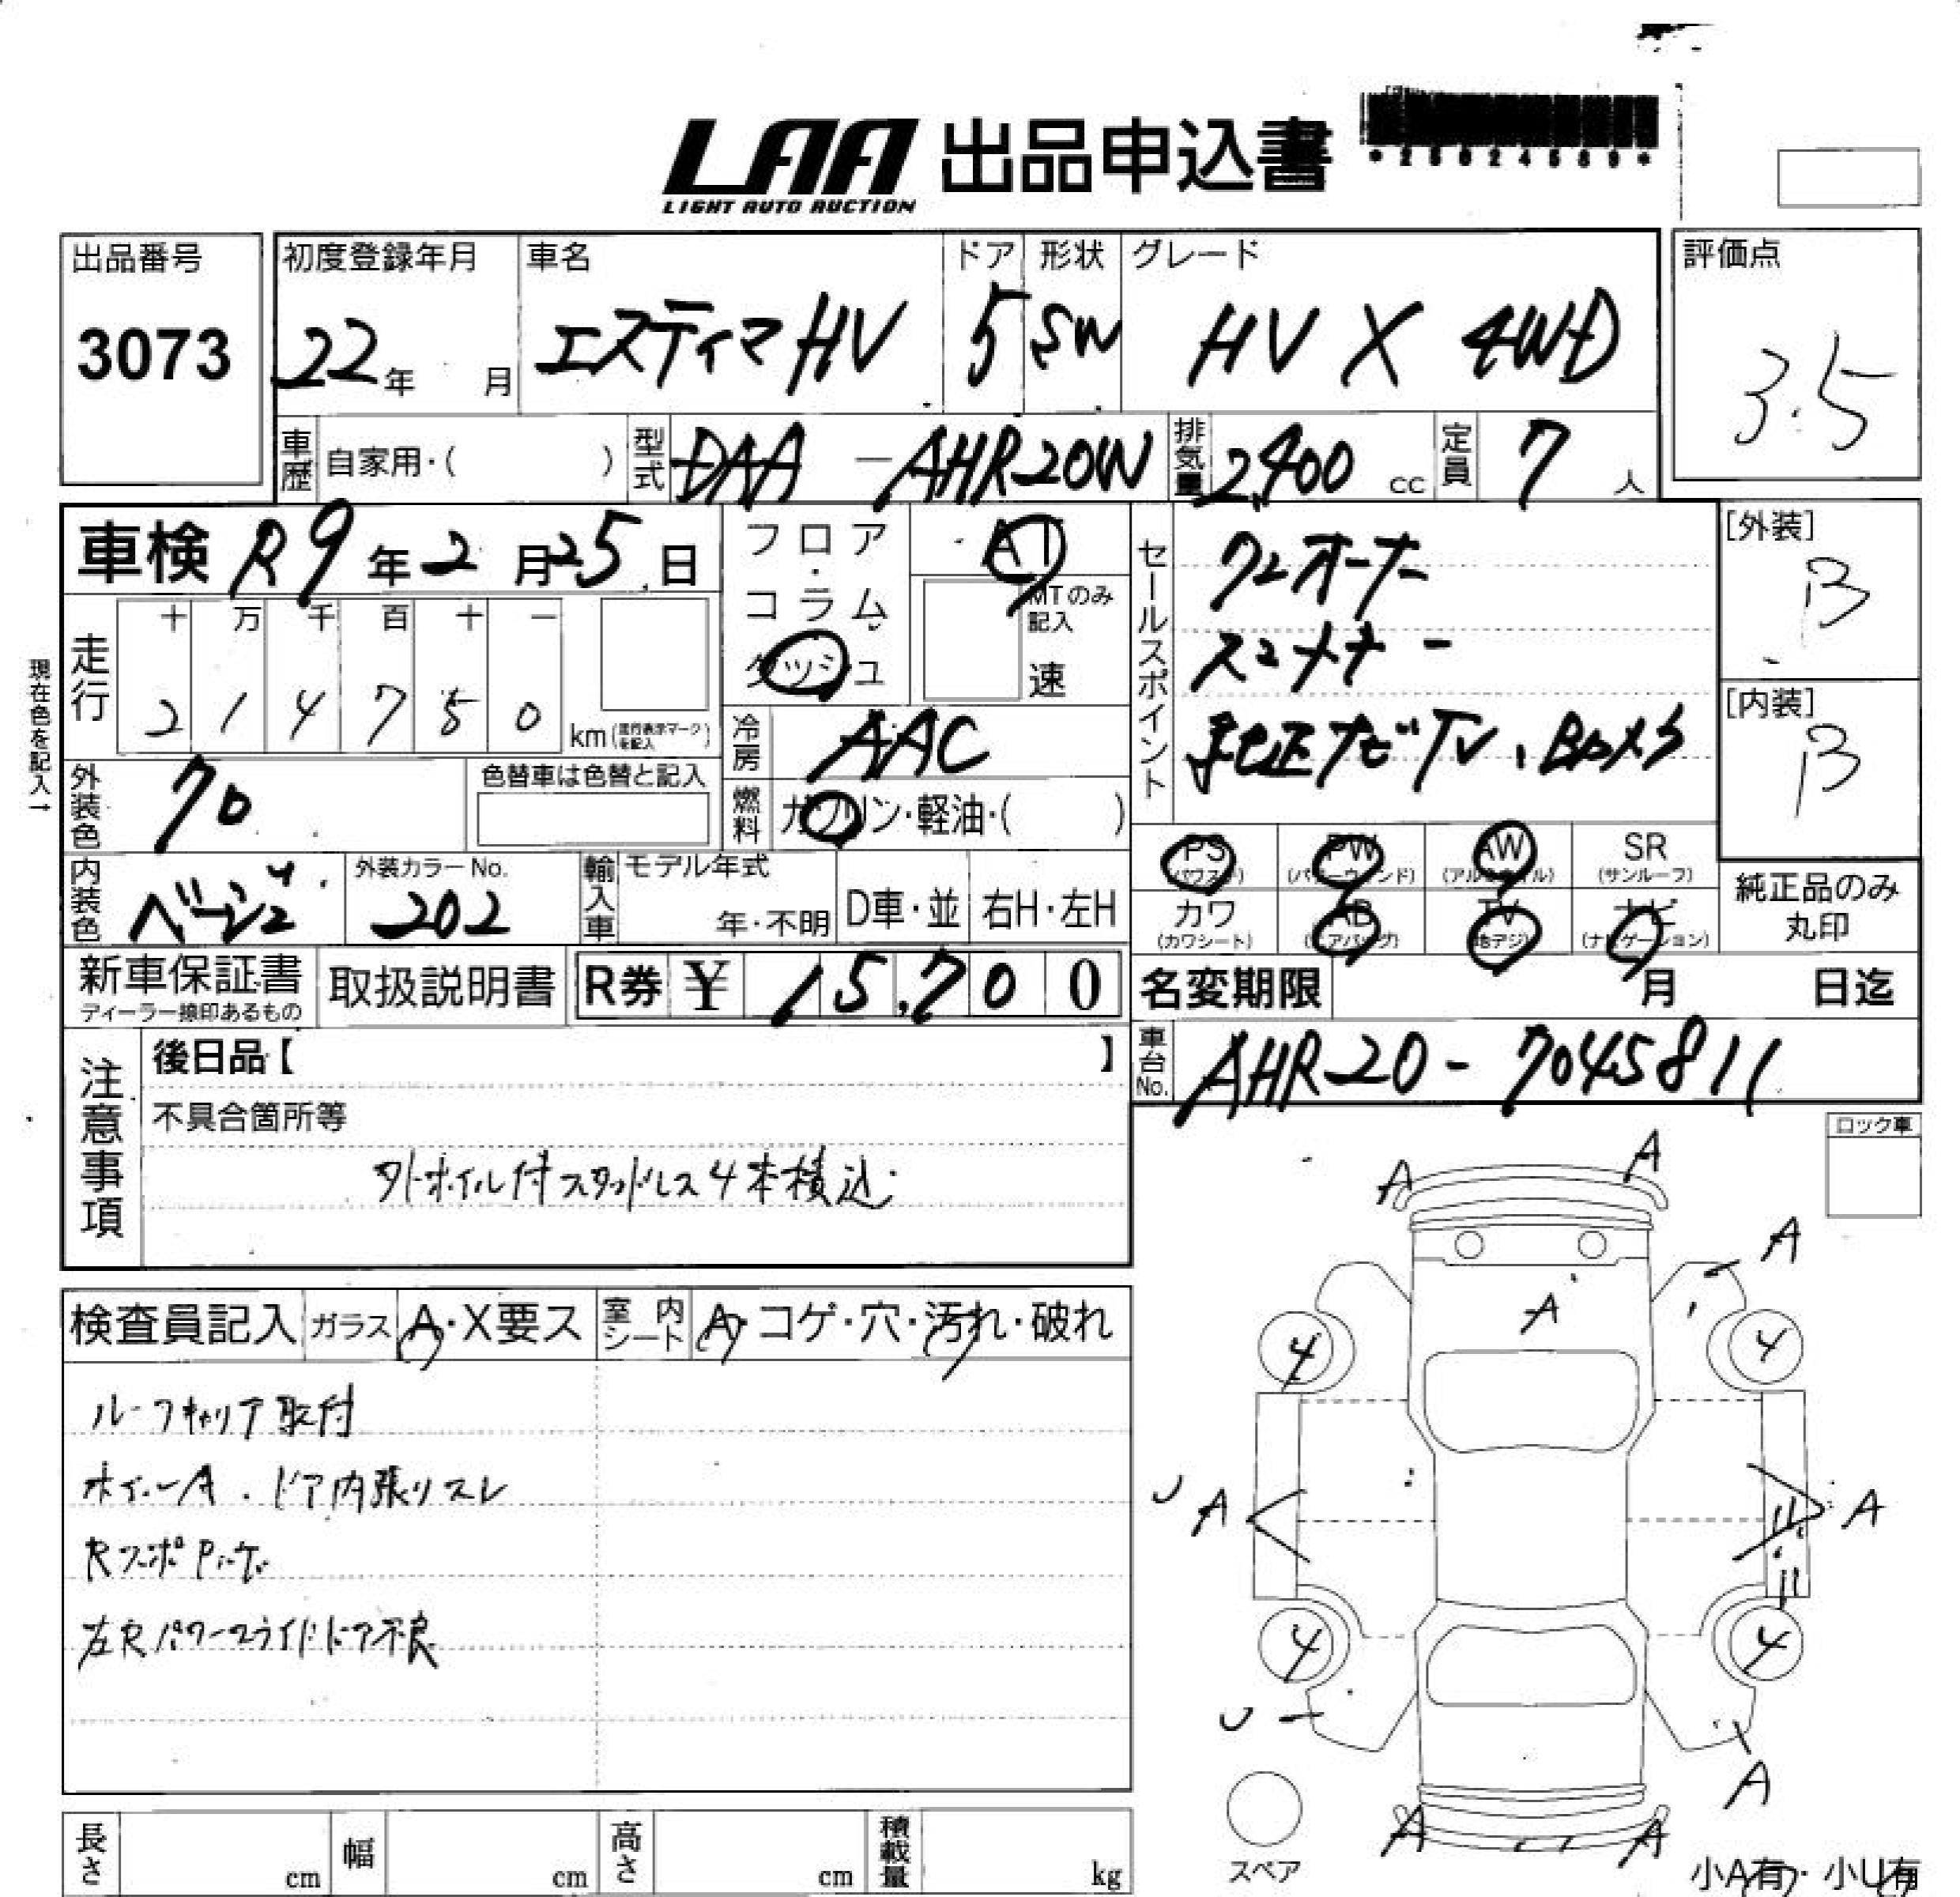 LAA 出品申込書
LIGHT AUTO AUCTION
出品番号
3073
初度登録年月
22年 月
車名
エスティマHV
ドア
5
形状
SW
グレード
HV X 4WD
評価点
3.5
車歴 自家用・( )
型式 DAA-AHR20W
排気量 2,400 cc
定員 7 人
車検 R9年2月25日
走行
十 万 千 百 十 一
2 1 4 7 5 0 km(走行表示マークを記入)
現在色を記入→
フロア・コラム・ダッシュ
AT
MTのみ記入
速
冷房 AAC
燃料 ガソリン・軽油・( )
セールスポイント
ワンオーナー
スマートキー
純正ナビTV、Bカメラ
[外装]
B
[内装]
B
外装色 クロ
色替車は色替と記入
内装色 ベージュ
外装カラーNo.
202
輸入車
モデル年式
年・不明
D車・並
右H・左H
PS
(パワステ)
PW
(パワーウィンド)
AW
(アルミホイル)
SR
(サンルーフ)
カワ
(カワシート)
AB
(エアバッグ)
TV
(地デジ)
ナビ
(ナビゲーション)
純正品のみ
丸印
新車保証書
ディーラー捺印あるもの
取扱説明書
R券 ¥ 15,700
名変期限 月 日迄
車台No. AHR20-7045811
注意事項
後日品【 】
不具合箇所等
外ホイル付スタッドレス4本積込
ロック車
検査員記入
ガラス A・X要ス
室内シート A・コゲ・穴・汚れ・破れ
ルーフキャリア取付
ホイールA.ドア内張りスレ
左Rパワースライドドア不良
A A
A
A
4 4
A A
4 4
U
A
A A
スペア
小A有・小U有
長さ cm
幅 cm
高さ cm
積載量 kg